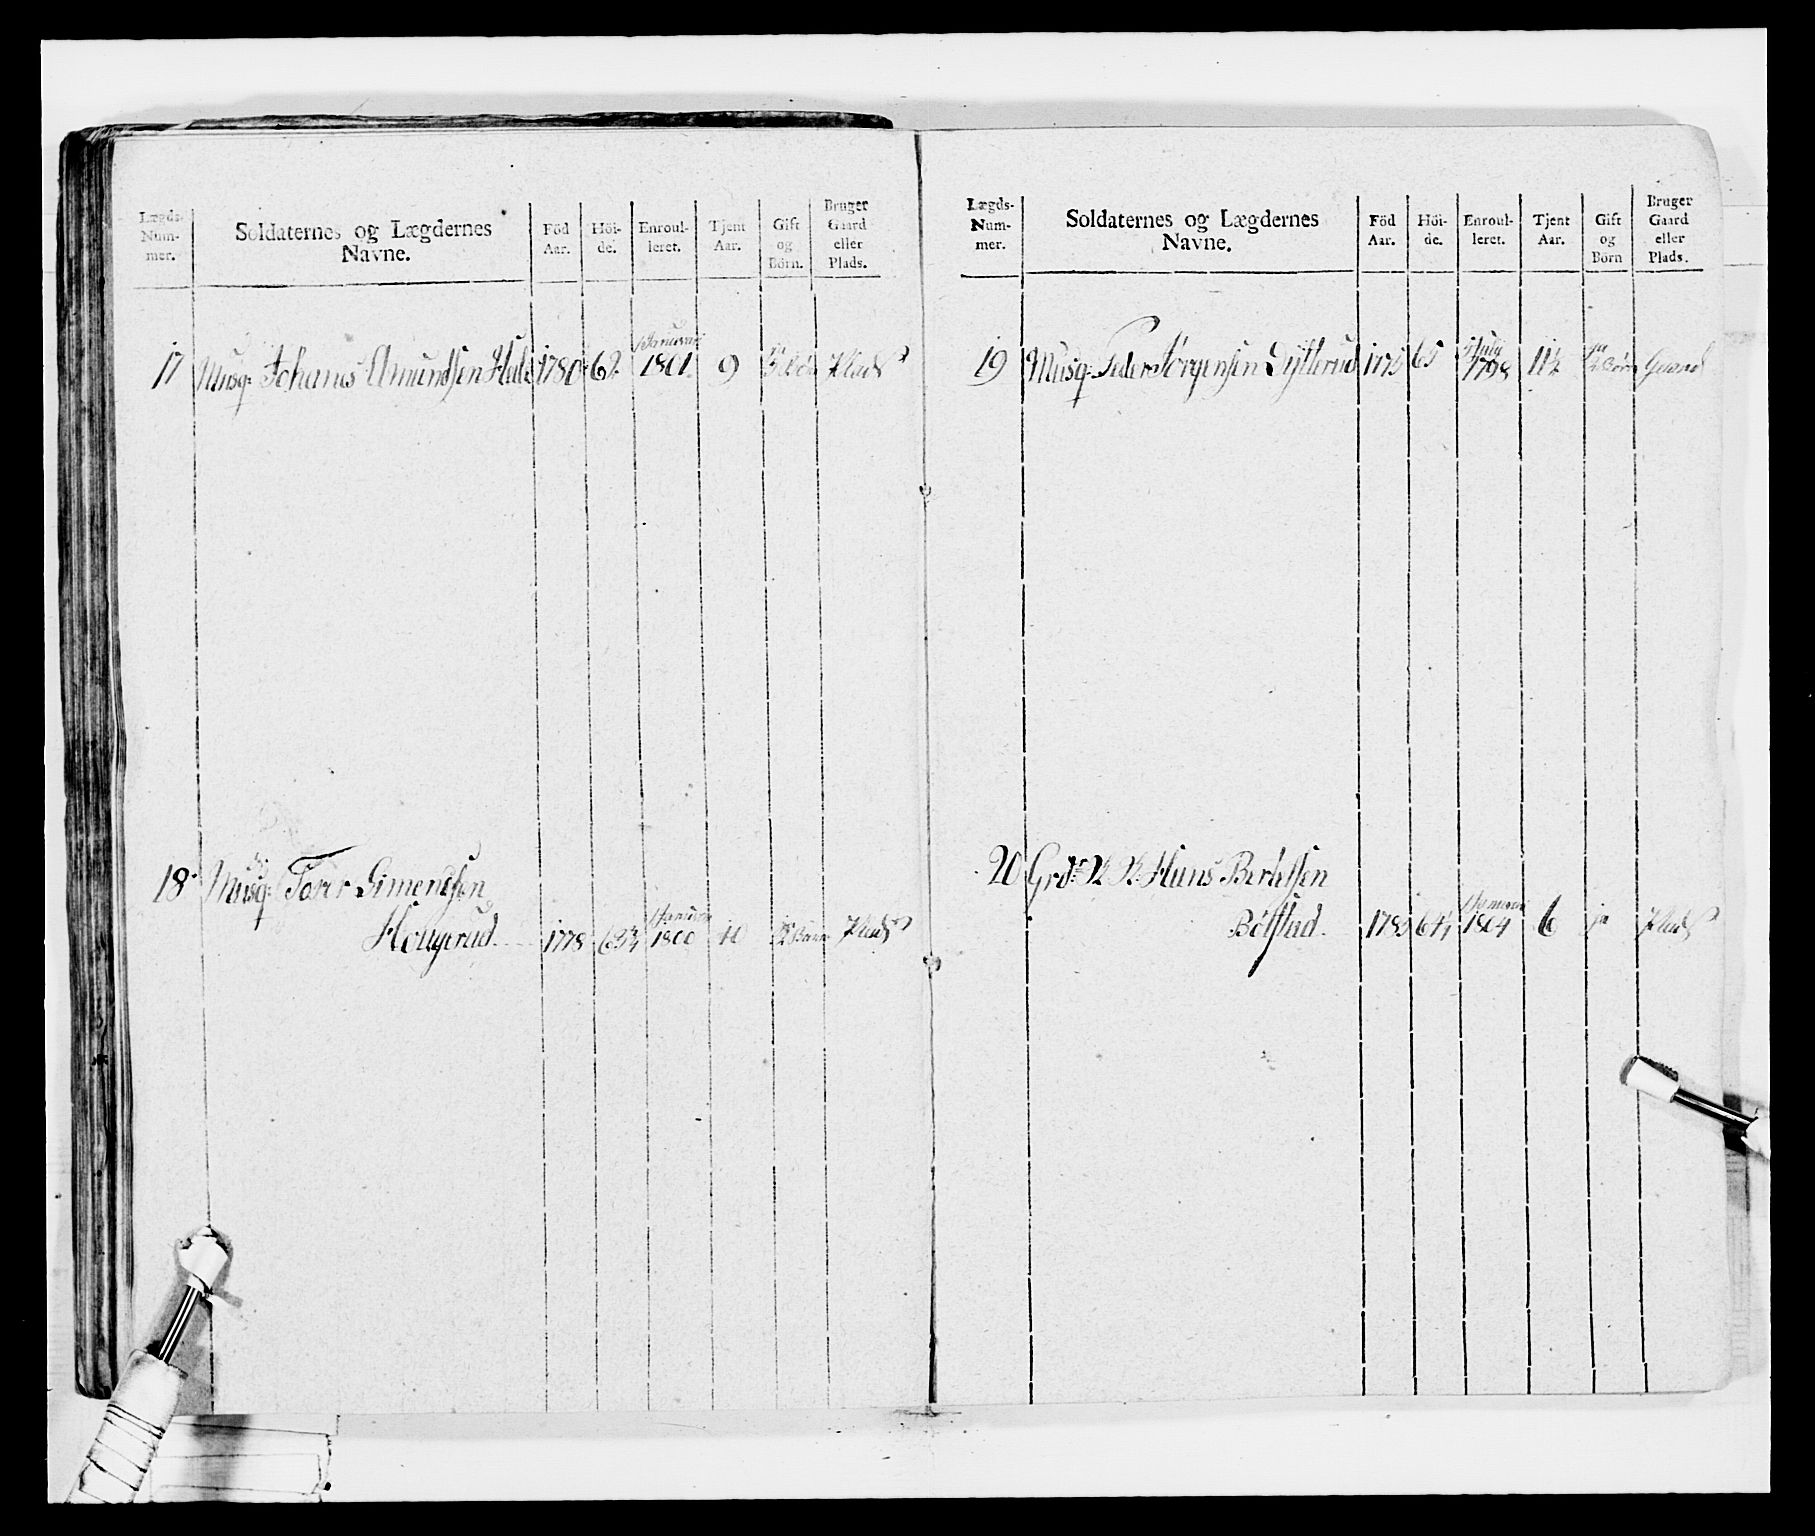 Lægds-Num-mer. Soldaternes og Lægdernes Navne. Född Aar. Höi-de. Enroul-leret. Tjent Aar. Gift og Börn. Bruger Gaard eller Plads.
17 Musq: Johanes Amundsen 1780 62 Januari 1801. 9 Plads
18. Musq: Simendsen
Hougerud. 1778 63¾ Januari 1800 10 Plads
Lægds-Num-mer. Soldaternes og Lægdernes Navne. Föd Aar. Höi-de. Enroul-leret. Tjent Aar. Gift og Börn Bruger Gaard eller Plads.
19 Musq: Peder Jörgensen Dytterud 1775 65 July 1798 11½ ja 2 Börn Gaard
20 Hans Bertelsen
Bölstad. 1785 64½ Januari 1804 6 ja Plads